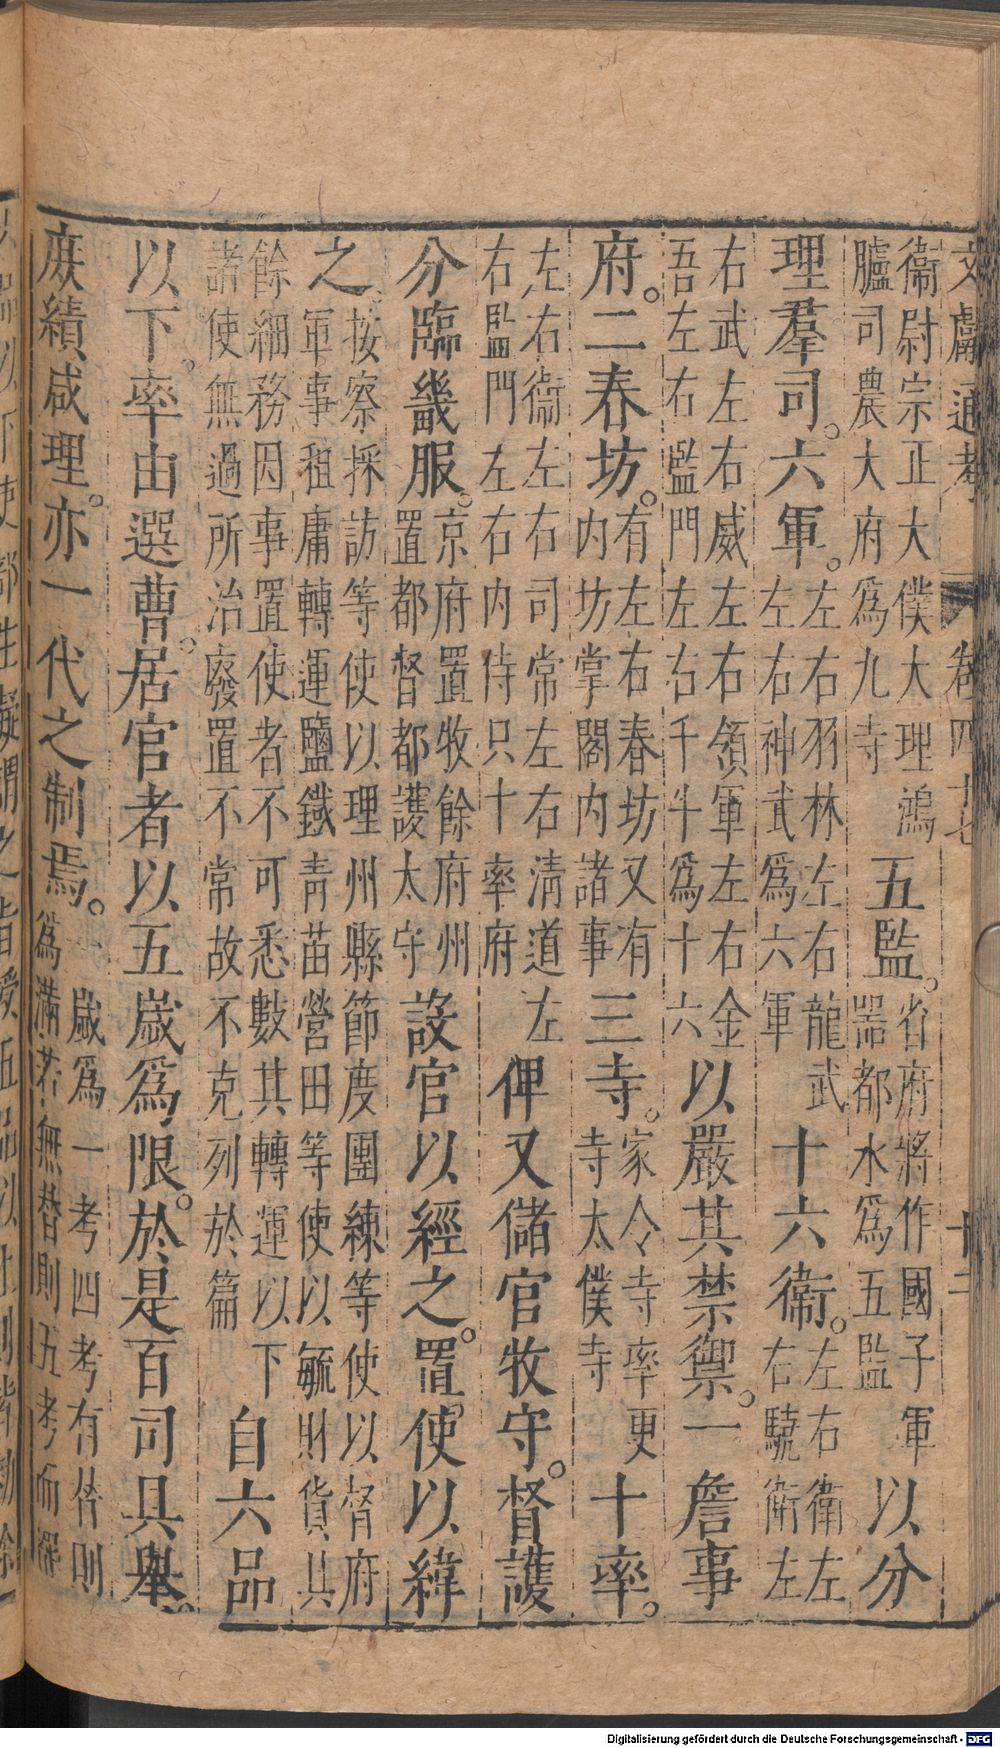 文獻通考 卷四十七 十二
衞尉宗正大僕大理鴻
臚司農大府爲九寺
五監。
省府將作國子軍
噐都水爲五監
以分
理羣司。六軍。
左右羽林左右龍武
左右神武爲六軍
十六衞。
左右衞左
右驍衞左
右武左右威左右領軍左右金
吾左右監門左右千牛爲十六
以嚴其禁禦。一詹事
府。二春坊。
有左右春坊又有
內坊掌閣內諸事
三寺。
家令寺率更
寺太僕寺
十率。
左右衞左右司常左右清道左
右監門左右內侍只十率府
俾又儲官牧守。督護
分臨畿服。
京府置牧餘府州
置都督都護太守
設官以經之。置使以緯
之。
按察採訪等使以理州縣節度團練等使以督府
軍事租庸轉運鹽鐵青苗營田等使以毓財貨其
餘細務因事置使者不可悉數其轉運以下
諸使無過所治廢置不常故不克列於篇
自六品
以下。率由選曹。居官者以五歲爲限。於是百司具舉。
庶績咸理。亦一代之制焉。
一歲爲一考四考有替則
爲滿若無替則五考而罷
Digitalisierung gefördert durch die Deutsche Forschungsgemeinschaft - DFG